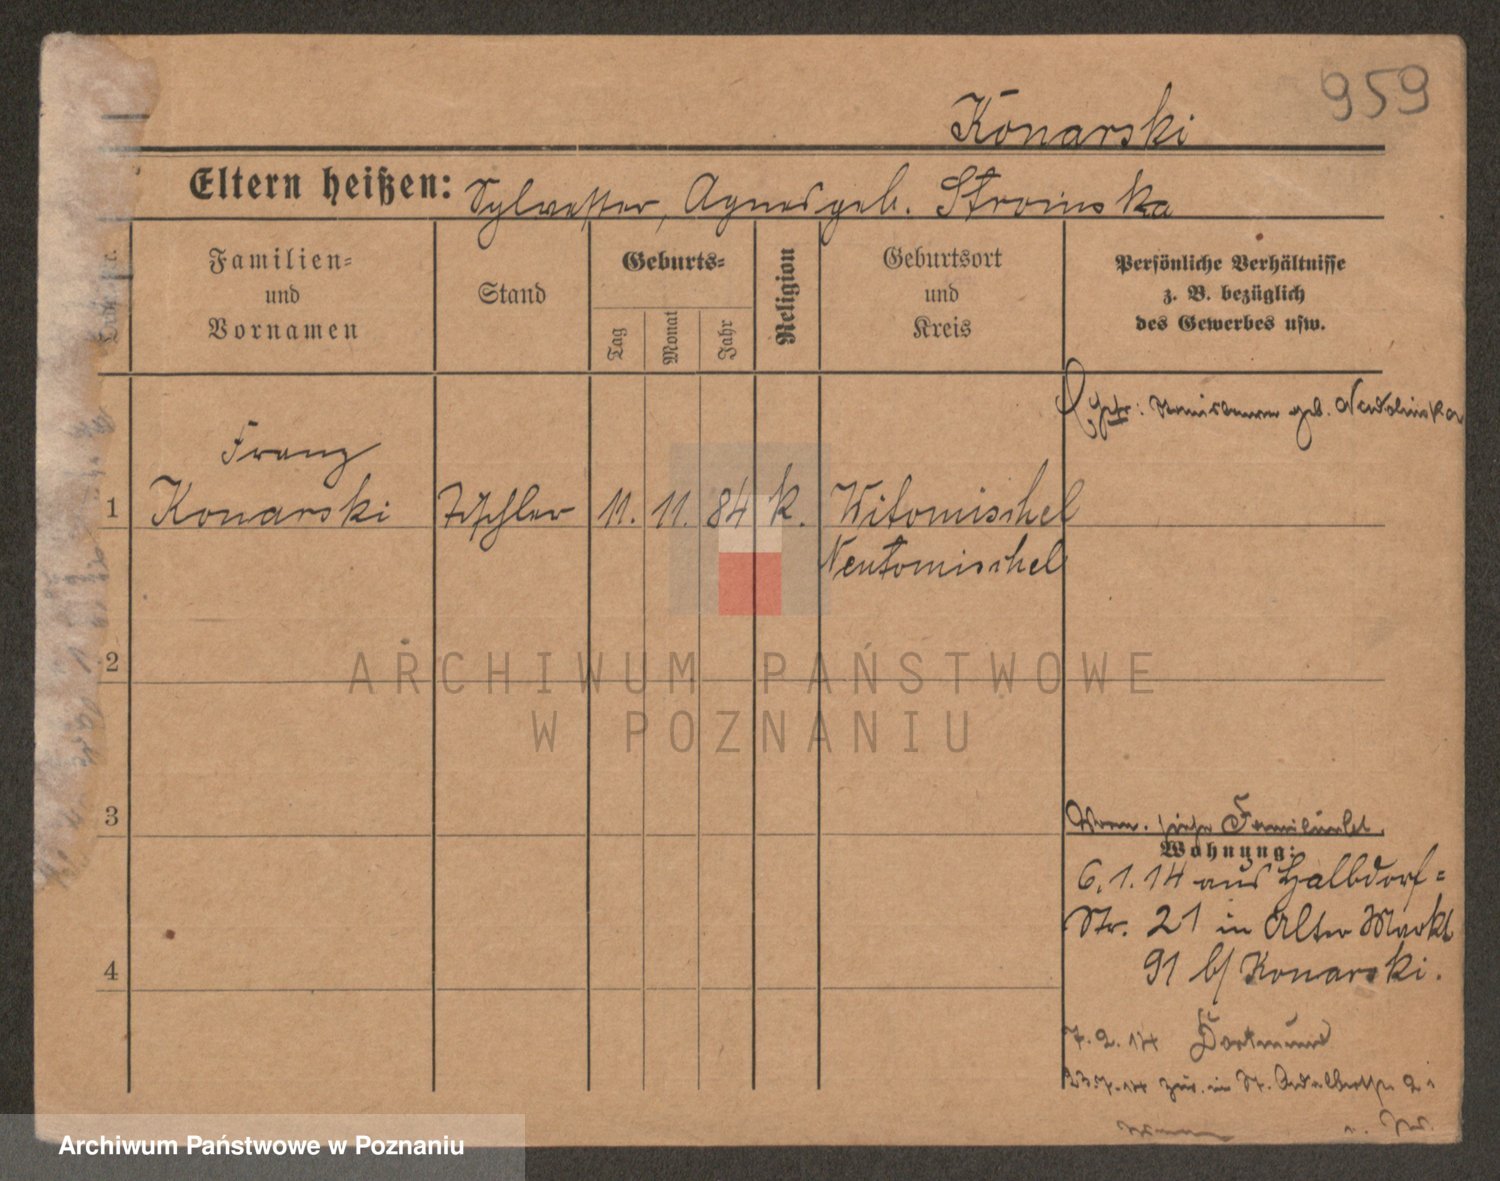 959
Konarski
Eltern heißen: Sylvester, Agnes geb. Stroinska
Familien=
und
Vornamen
Stand
Geburts=
Tag
Monat
Jahr
Religion
Geburtsort
und
Kreis
Persönliche Verhältnisse
z. B. bezüglich
des Gewerbes usw.
geb.
Franz
1 Konarski Tischler 11. 11. 84 k. Witomischel
Neutomischel
2
3
siehe
Wohnung:
6.1.14 aus Halbdorf=
Str. 21 in Alter Markt
91 b/ Konarski.
4
7.2.14 Dortmund
23.7.14 zur. in St. Adalbertstr. 2
ARCHIWUM PAŃSTWOWE
W POZNANIU
Archiwum Państwowe w Poznaniu